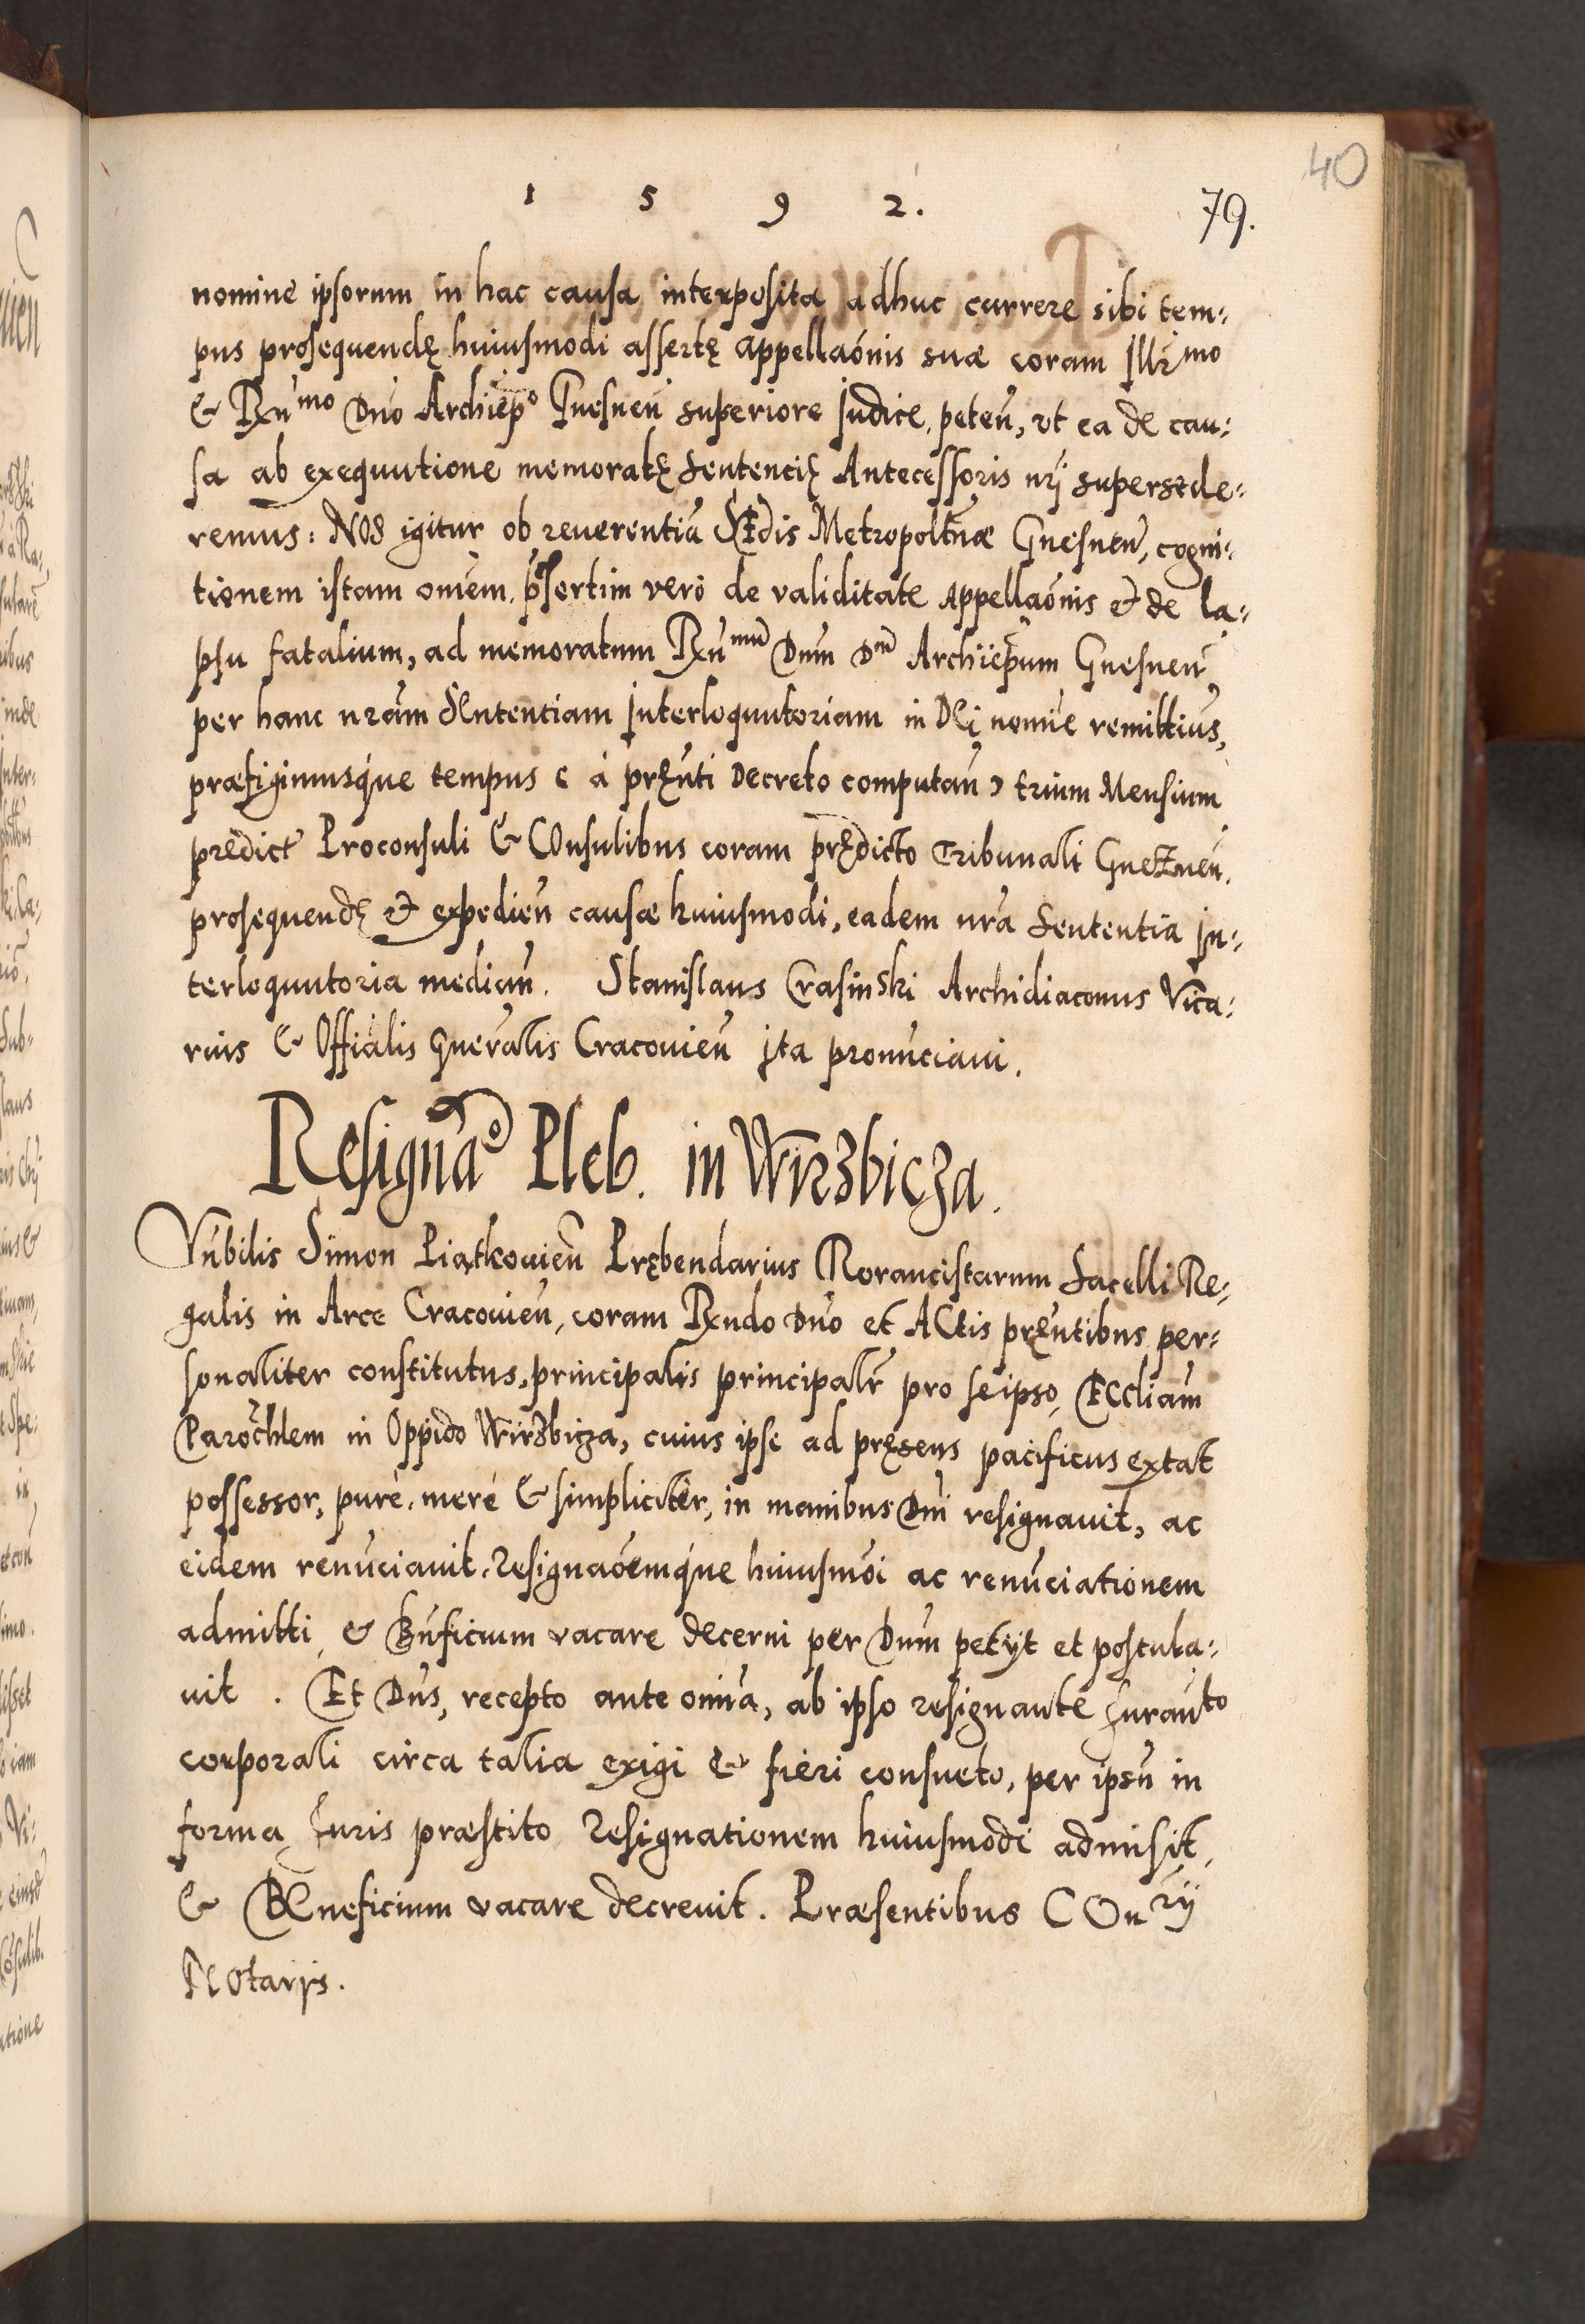 40
1 5 9 2.
79.
nomine ipsorum in hac causa interposita adhuc currere sibi tem:
pus prosequendę huiusmodi assertę appellaónis suæ coram Illr̃mo
& Rxñmo Dño Archiẽpo Gnesneñ superiore Judice, peteñ, vt ea de cau:
sa ab exequutione memoratę Sentencię Antecessoris nr̃j supersede:
remus: NOS igitur ob reuerentiã SEdis Metropolt̃næ Gnesneñ, cogni:
tionem istam om̃em, p̃sertim vero de validitate appellaónis & de la:
psu fatalium, ad memoratum Rxñmũ Dñm Dñ Archiẽpum Gnesneñ
per hanc nr̃am SEntentiam Interloquutoriam in Dej nomĩe remittim̃us,
præfigimusq́ue tempus ( à pręñti Decreto computañ ) trium Mensium
predict̃ Proconsuli & COnsulibus coram prędicto Tribunali Gneznen̄.
prosequendę & expedień causæ huiusmodi, eadem nr̃a Sententia In:
terloquutoria mediañ. Stanislaus Crasinski Archidiaconus Vica:
rius & Offiälis Gñeralis Cracouieñ ita pronũciaui.
Resignão Pleb. in Wirzbicza.
Vñbilis Simon Piątkouieñ Prębendarius Rorancistarum Sacelli Re:
galis in Arce Cracouieñ, coram Rxndo Dño et ACtis pręñtibus per:
sonaliter constitutus, principalis principalr̃ pro seipso, ECcliam
Parochlem in Oppido Wirzbicza, cuius ipse ad pręsens pacificus extat
possessor, purè, merè & simpliciter, in manibus Dñi resignauit, ac
eidem renũciauit. Resignaõemq́ue huiusmõi ac renũciationem
admitti & Bñficium vacare decerni per Dñm petijt et postula:
uit . Et Dñs, recepto ante om̃ia, ab ipso resignante Jurañto
corporali circa talia exigi & fieri consueto, per ipsũ in
forma Juris præstito Resignationem huiusmodi admisit,
& BEneficium vacare decreuit. Præsentibus COnrij
NOtarijs.